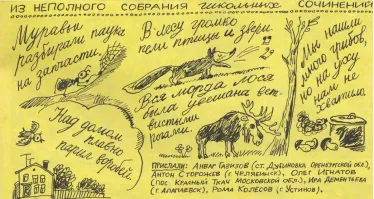 ИЗ НЕПОЛНОГО СОБРАНИЯ ШКОЛЬНЫХ СОЧИНЕНИЙ
Муравьи
разбирали паука
на запчасти.
В лесу громко
пели птицы и звери.
Вся морда лося
была усеяна вет-
вистыми
рогами.
Мы нашли
много грибов,
но на уху
нам не
хватило.
Над домом
плавно
парил воробей.
ПРИСЛАЛИ: АНВАР ГАВИЗОВ (СТ. ДУБИНОВКА ОРЕНБУРГСКОЙ ОБЛ.),
АНТОН СТОРОЖЕВ (Г. ЧЕЛЯБИНСК), ОЛЕГ ИГНАТОВ
(ПОС. КРАСНЫЙ ТКАЧ МОСКОВСКОЙ ОБЛ.), ИРА ДЕМЕНТЬЕВА
(Г. АЛАПАЕВСК), РОМА КОЛЕСОВ (Г. УСТИНОВ).